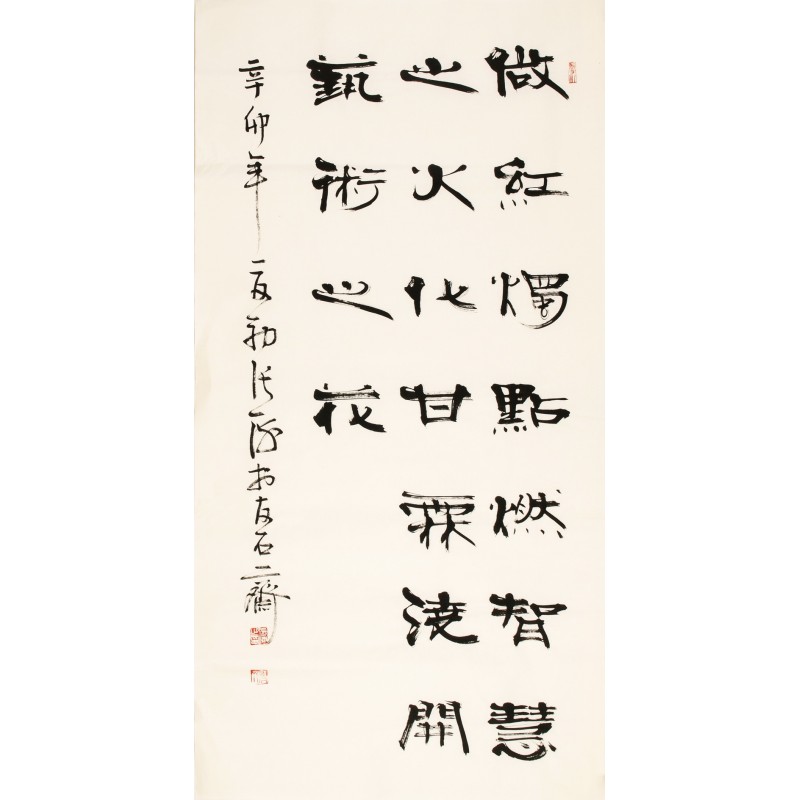 做紅燭點燃智慧
之火化甘霖澆開
藝術之花
辛卯年夏勒石二齋